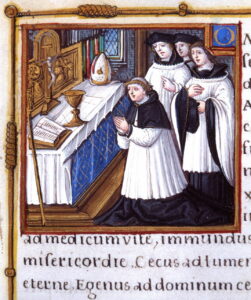 O
ad medicum vite, immundus
misericordie. Cecus ad lumen
eterne. Egenus ad dominum c